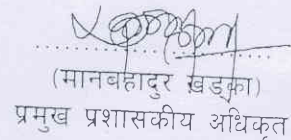 (मानबहादुर खड्का)
प्रमुख प्रशासकीय अधिकृत